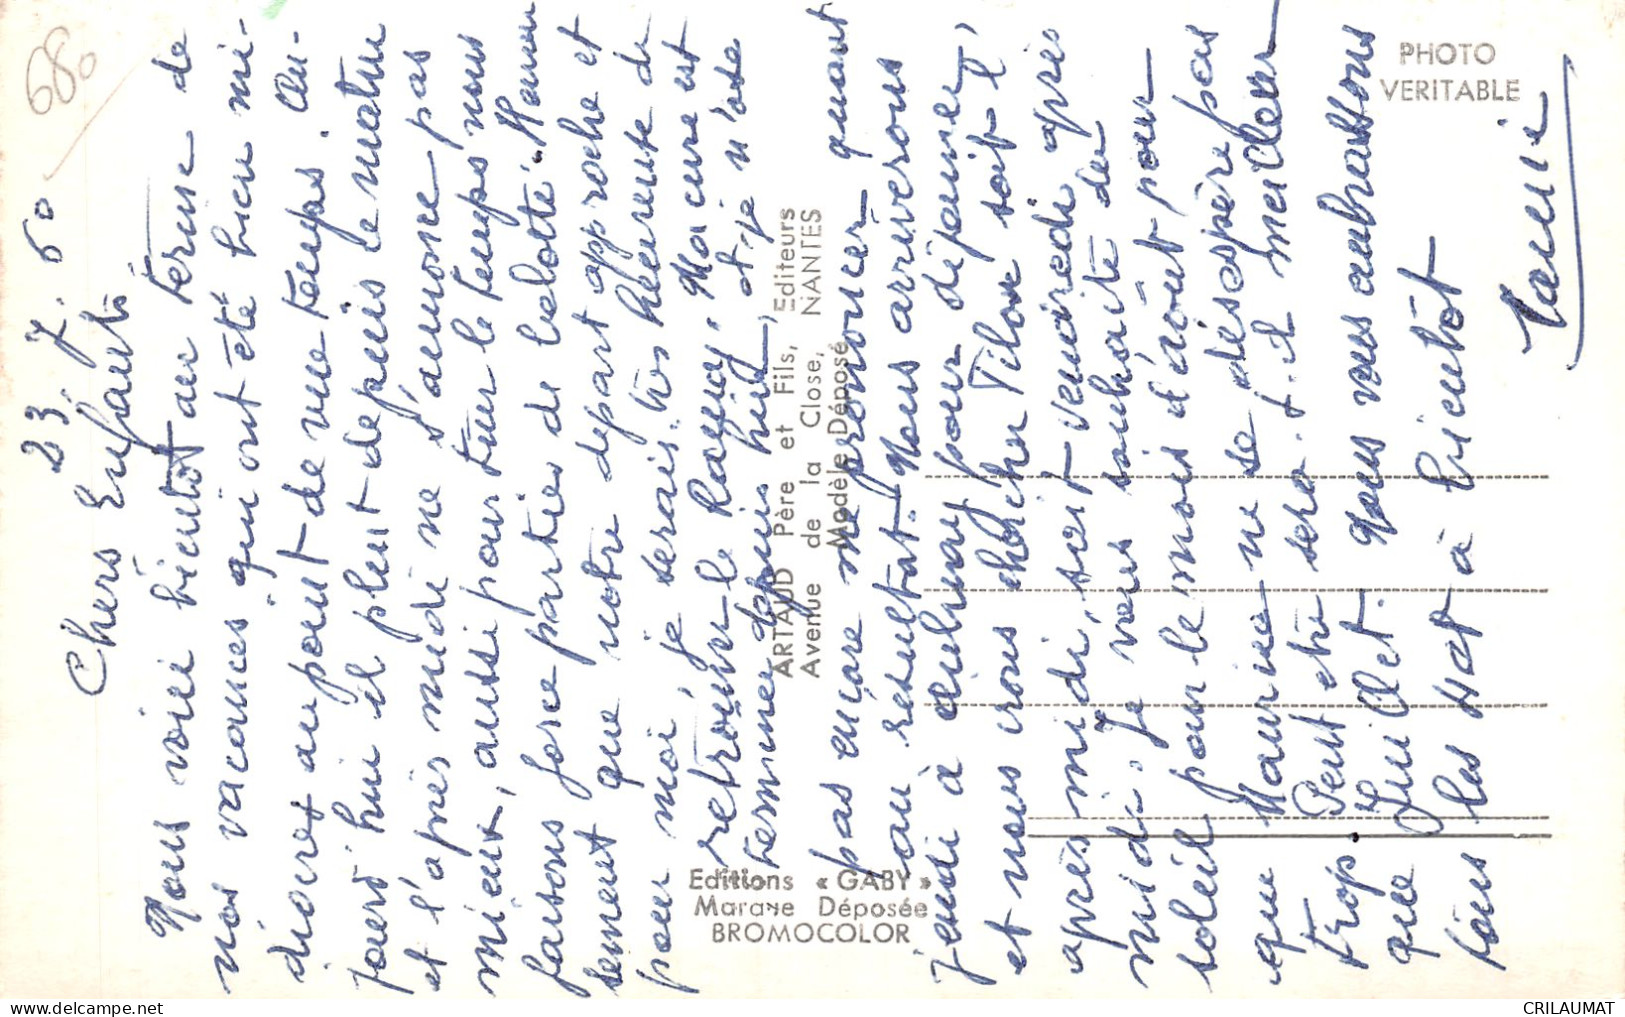 23.7.60
Chers Enfants
Nous voici bientôt au terme de
nos vacances qui ont été bien mé-
diocres au point de vue temps. Au-
jourd'hui il pleut depuis le matin
et l'après midi ne s'annonce pas
mieux, aussi pour tuer le temps nous
faisons force parties de belotte. Heureu
sement que notre départ approche et
pour moi, je serais très heureuse de
retrouver le Raincy. Ma cure est
terminée depuis hier, et je n'ose
pas encore me prononcer quant
au resultat. Nous arriverons
jeudi à Aulnay pour déjeuner,
et nous irons chercher Tilou soit l'
après midi, soit vendredi après
midi. Je vous souhaite du
soleil pour le mois d'août pour
que Maurice ne se désespère pas
trop. Peut être sera-t-il meilleur
que Juillet. Nous vous embrassons
tous les 4 et à bientôt
Mamie
680
PHOTO
VERITABLE
ARTAUD Père et Fils, Editeurs
Avenue de la Close, NANTES
Modèle Déposé
Editions « GABY »
Marque Déposée
BROMOCOLOR
CRILAUMAT